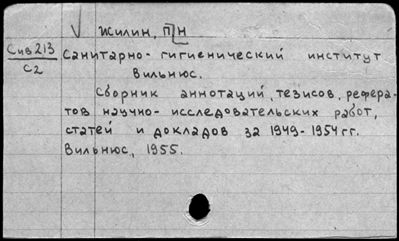 Жилин, П/Н
Сив213
С2
Санитарно-гигиенический институт
Вильнюс.
Сборник аннотаций, тезисов, рефера-
тов научно-исследовательских работ,
статей и докладов за 1949-1954гг.
Вильнюс, 1955.